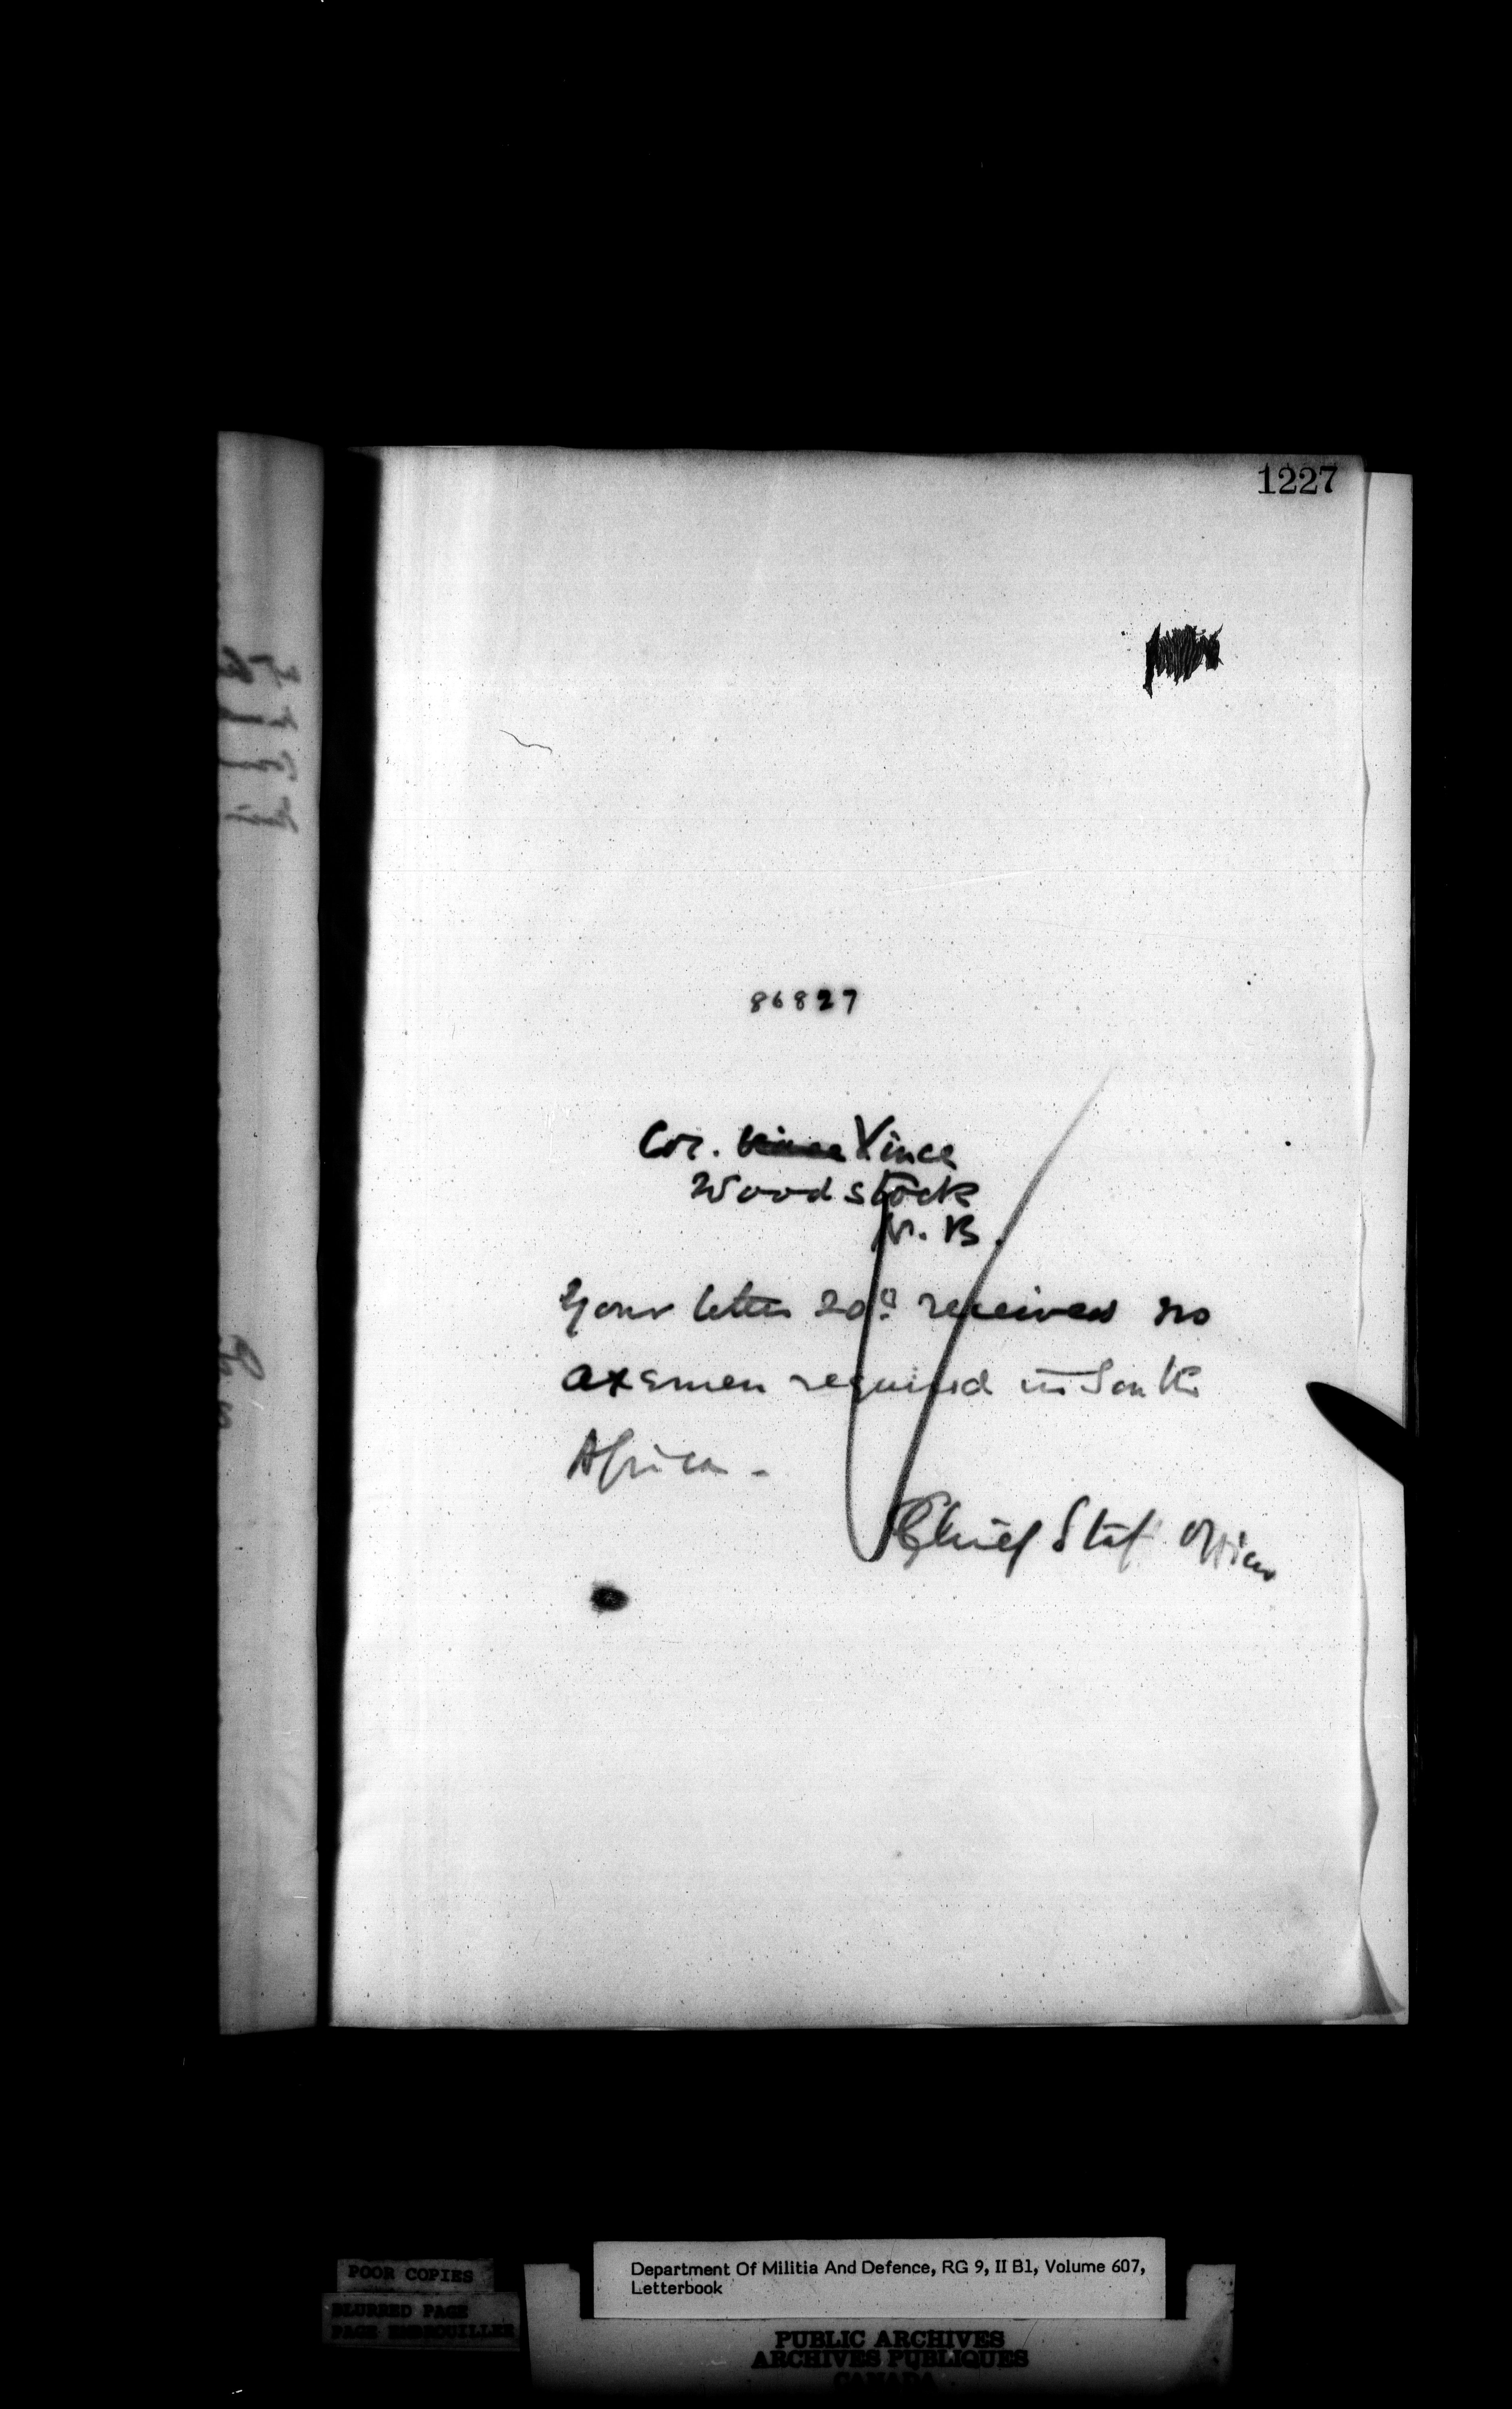 1227
86827
Col. Vince
Woodstock
N. B.
Your letter 20th received no
axemen required in South
Africa -
Chief Staff Officer
POOR COPIES
BLURRED PAGE
PAGE EMBROUILLEE
Department Of Militia And Defence, RG 9, II B1, Volume 607,
Letterbook
PUBLIC ARCHIVES
ARCHIVES PUBLIQUES
CANADA